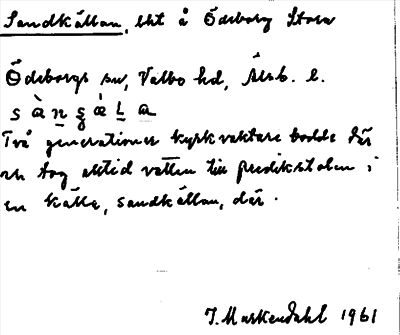 Sandkällan, ält å Ödeborg Stora
Ödeborgs sn, Valbo hd, Älvsb. l.
sànşæ̀La
Två generationer kyrkvaktare bodde där
och tog alltid vatten till predikstolen i
en källa, sandkällan, där.
J. Markendahl 1961